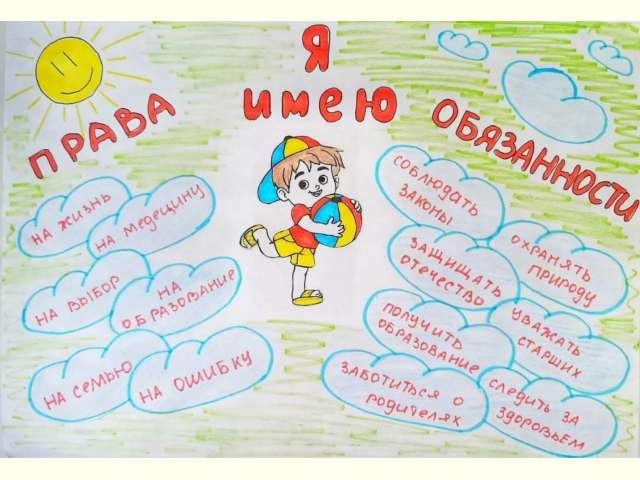 Я
имею
ПРАВА
НА ЖИЗНЬ
НА МЕДЕЦИНУ
НА ВЫБОР
НА
ОБРАЗОВАНИЕ
НА СЕМЬЮ
НА ОШИБКУ
ОБЯЗАННОСТИ
СОБЛЮДАТЬ
ЗАКОНЫ
ОХРАНЯТЬ
ПРИРОДУ
ЗАЩИЩАТЬ
ОТЕЧЕСТВО
УВАЖАТЬ
СТАРШИХ
ПОЛУЧИТЬ
ОБРАЗОВАНИЕ
СЛЕДИТЬ ЗА
ЗДОРОВЬЕМ
ЗАБОТИТЬСЯ О
РОДИТЕЛЯХ